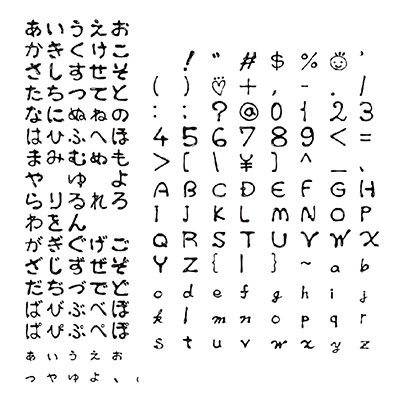 あいうえお
かきくけこ
さしすせそ
たちつてと
なにぬねの
はひふへほ
まみむめも
や ゆ よ
らりるれろ
わをん
がぎぐげご
ざじずぜぞ
だぢづでど
ばびぶべぼ
ぱぴぷぺぽ
ぁぃぅぇぉ
っゃゅょ、（
! " # $ % ☺ '
( ) ♡ + , - . /
: ; ? @ 0 1 2 3
4 5 6 7 8 9 < =
> [ \ ¥ ] ^ _ 、
A B C D E F G H
I J K L M N O P
Q R S T U V W X
Y Z { | } ~ a b
c d e f g h i j
k l m n o p q r
s t u v w x y z